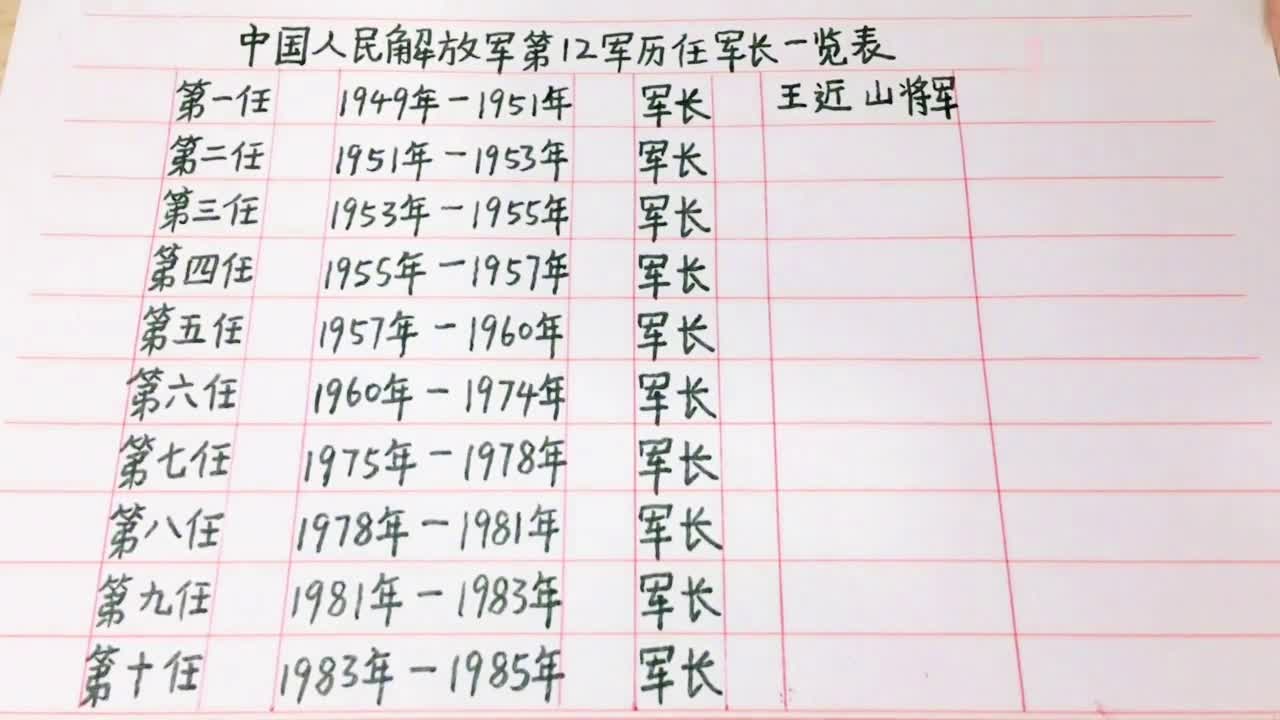 中国人民解放军第12军历任军长一览表
第一任 1949年-1951年 军长 王近山将军
第二任 1951年-1953年 军长
第三任 1953年-1955年 军长
第四任 1955年-1957年 军长
第五任 1957年-1960年 军长
第六任 1960年-1974年 军长
第七任 1975年-1978年 军长
第八任 1978年-1981年 军长
第九任 1981年-1983年 军长
第十任 1983年-1985年 军长